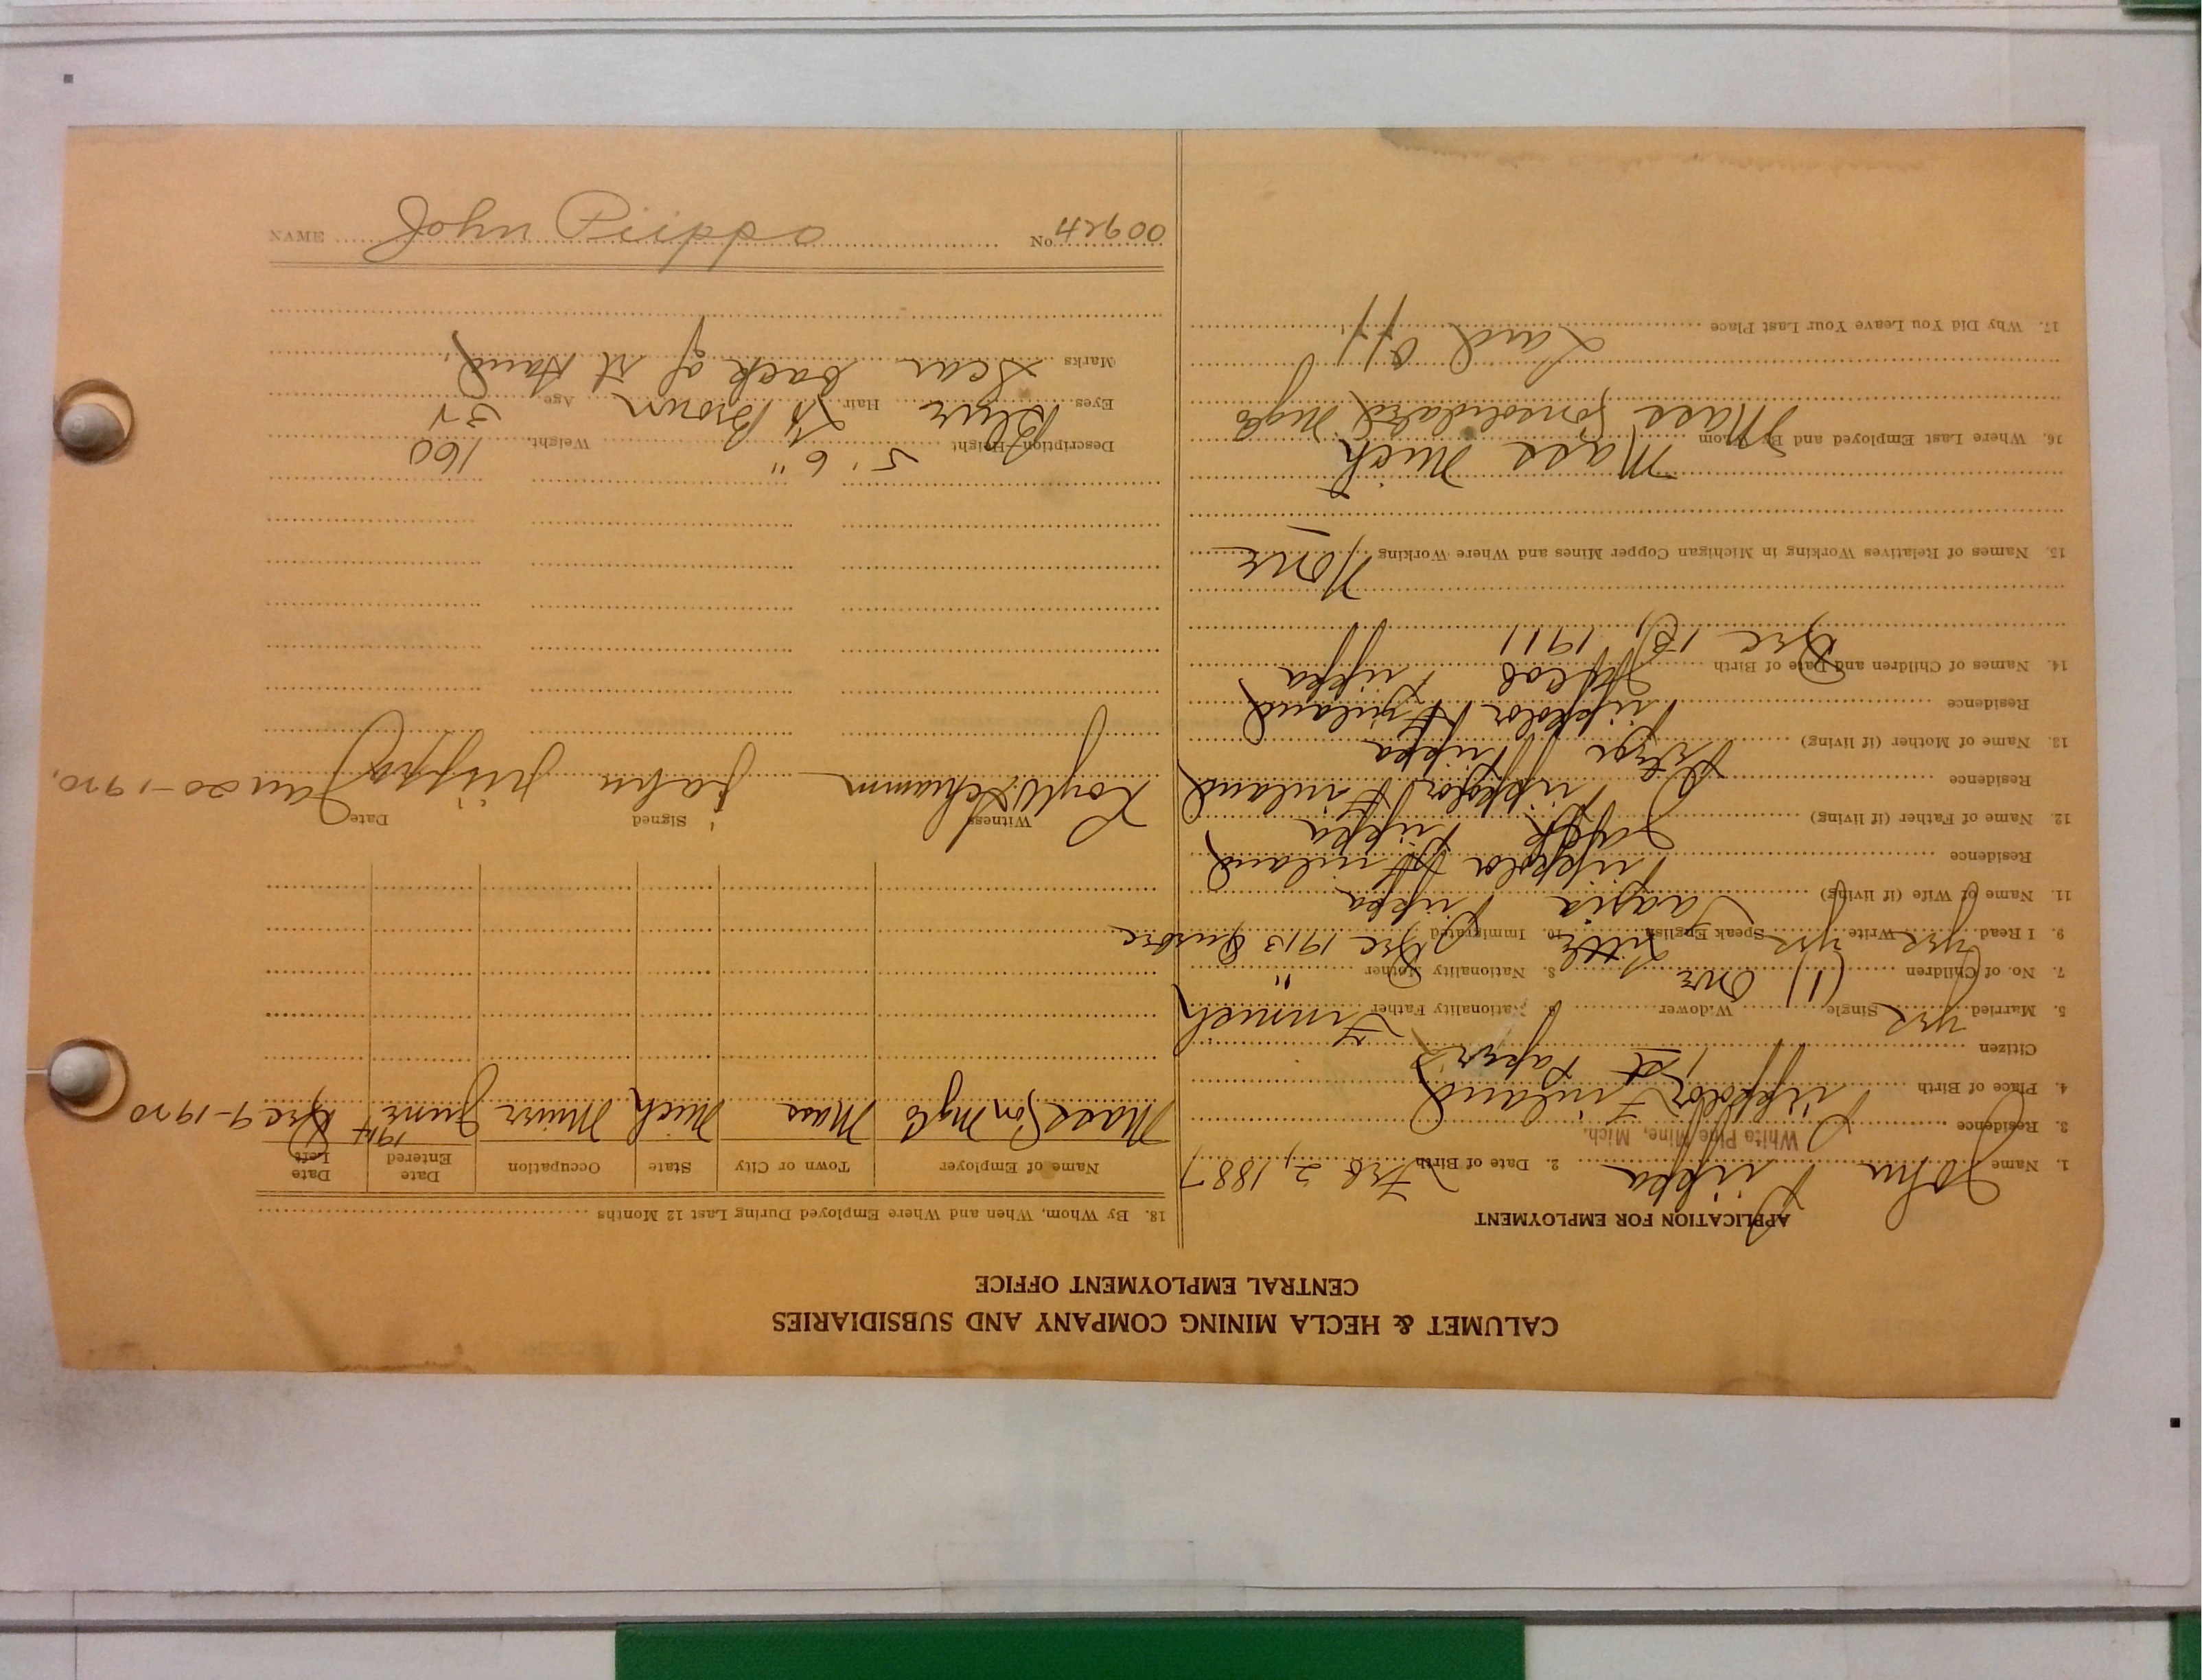 CALUMET & HECLA MINING COMPANY AND SUBSIDIARIES
CENTRAL EMPLOYMENT OFFICE
APPLICATION FOR EMPLOYMENT
1. Name John Piippa 2. Date of Birth Feb 2, 1887
3. Residence White Pine Mine, Mich.
4. Place of Birth Piippola Finland
Citizen 1st Papers
5. Married yes Single Widower 6. Nationality Father Finnich
7. No. of Children (1) One 8. Nationality Mother "
9. I Read yes Write yes Speak English Little 10. Immigrated Dec 1913
11. Name of Wife (if living) Piippa
Residence Piippola Finland
12. Name of Father (if living) Piippa
Residence Piippola Finland
13. Name of Mother (if living) Piippa
Residence Piippola Finland
14. Names of Children and Date of Birth Jacob Piippa
Dec 13, 1911
15. Names of Relatives Working in Michigan Copper Mines and Where Working None
Mass Mich
16. Where Last Employed and By Whom
Mass Consolidated
17. Why Did You Leave Your Last Place Laid off
18. By Whom, When and Where Employed During Last 12 Months
Name of Employer Town or City State Occupation Date Entered Date Left
Mass Con Mg Co Mass Mich Miner June 1914 Dec 9-1920
Witness Signed Date
John Piippo Jan 20-1920.
Description—Height 5' 6" Weight 160
Eyes Blue Hair Lt Brown Age 32
Marks Scar back of rt Hand.
NAME John Piippo No. 42600